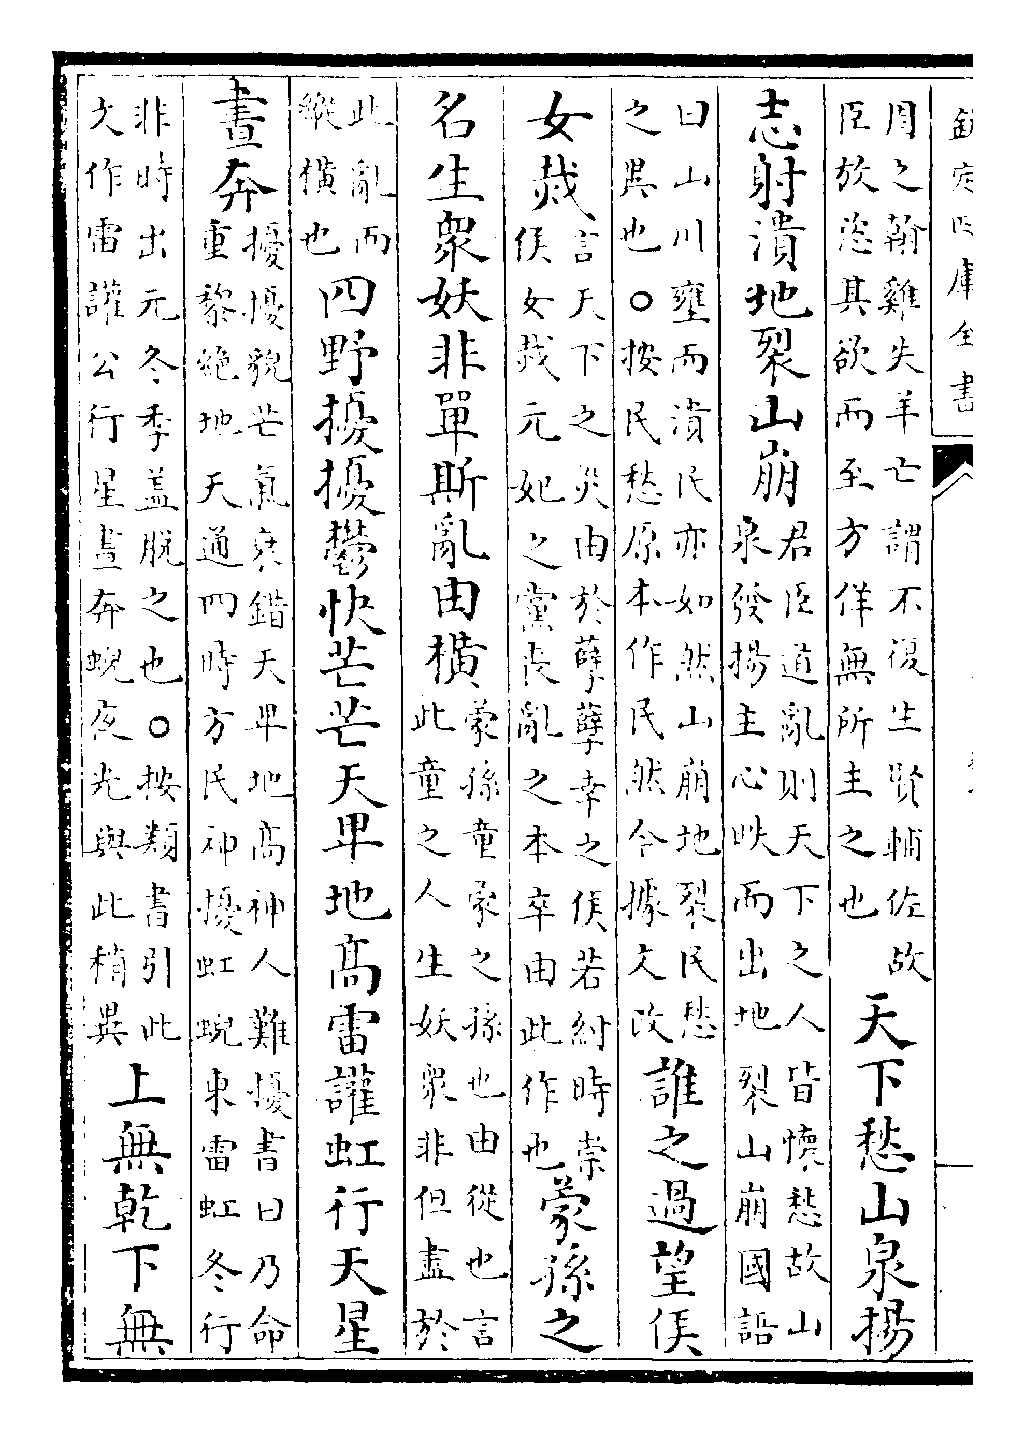 欽定四庫全書
周之翰雞失羊亡謂不復生賢輔佐故
臣放恣其欲而至方佯無所主之也
天下愁山泉揚
志射潰地裂山崩
君臣道亂則天下之人皆懷愁故山
泉發揚主心映而出地裂山崩國語
曰山川壅而潰民亦如然山崩地裂民愁
之異也○按民愁原本作民然今據文改
誰之過望侯
女烖
言天下之災由於孽孽幸之侯若紂時崇
侯女烖元妃之黨喪亂之本卒由此作也
蒙孫之
名生衆妖非單斯亂由橫
蒙孫童蒙之孫也由從也言
此童之人生妖衆非但盡於
此亂而
縱橫也
四野擾擾鬱快芒芒天卑地髙雷讙虹行天星
晝奔
擾擾貌芒氣衰錯天卑地髙神人難擾書曰乃命
重黎絶地天通四時方民神擾虹蜺東雷虹冬行
非時出元冬季蓋脱之也○按類書引此
文作雷讙公行星晝奔蜺夜光與此稍異
上無乾下無